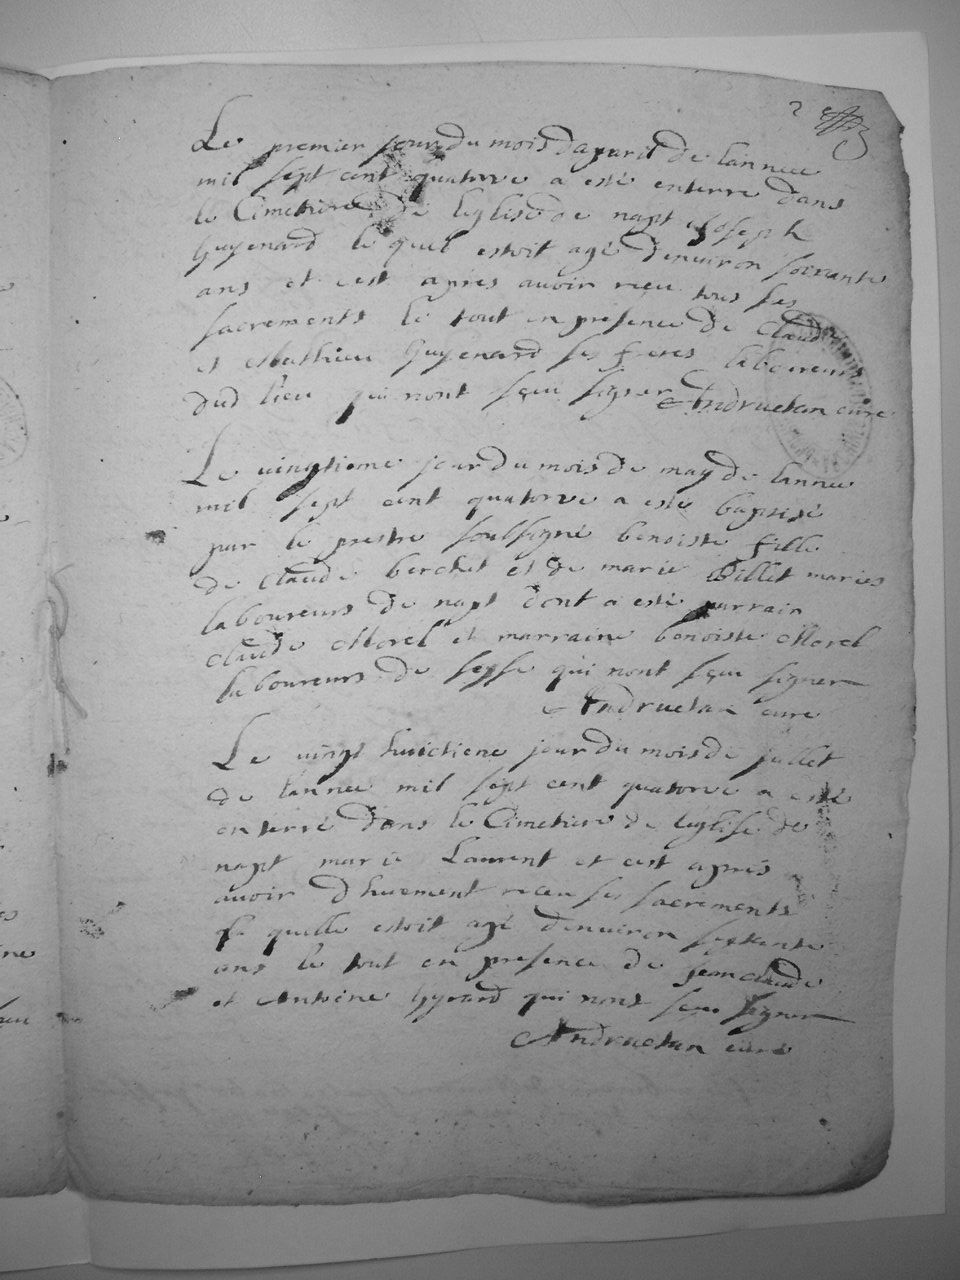 2
Le premier jour du mois dapvril de lannee
mil sept cent quatorze a esté enterre dans
le Cimetiere de leglise de napt Joseph
Guyenard le quel estoit agé denuiron soixante
ans et cest apres auoir receu tous ses
sacrements le tout en presence de Claude
et Mathieu Guyenard ses freres laboureurs
dud lieu qui nont sçeu signer Andruetan curé
Le uingtieme jour du mois de may de lannee
mil sept cent quatorze a esté baptisé
par le prestre soubsigné benoiste fille
de Claude berchet et de marie Billet maries
laboureurs de napt dont a esté parrain
Claude Morel et marraine benoiste Morel
laboureurs de qui nont sçeu signer
Andruetan curé
Le uingt huictiene jour du mois de jullet
de lannee mil sept cent quatorze a esté
enterré dans le Cimetiere de leglise de
napt marie Laurent et cest apres
auoir dhuement receu ses sacrements
la quelle estoit agé denuiron septante
ans le tout en presence de jean claude
et Antoine Gyrard qui nont sçeu signer
Andruetan curé